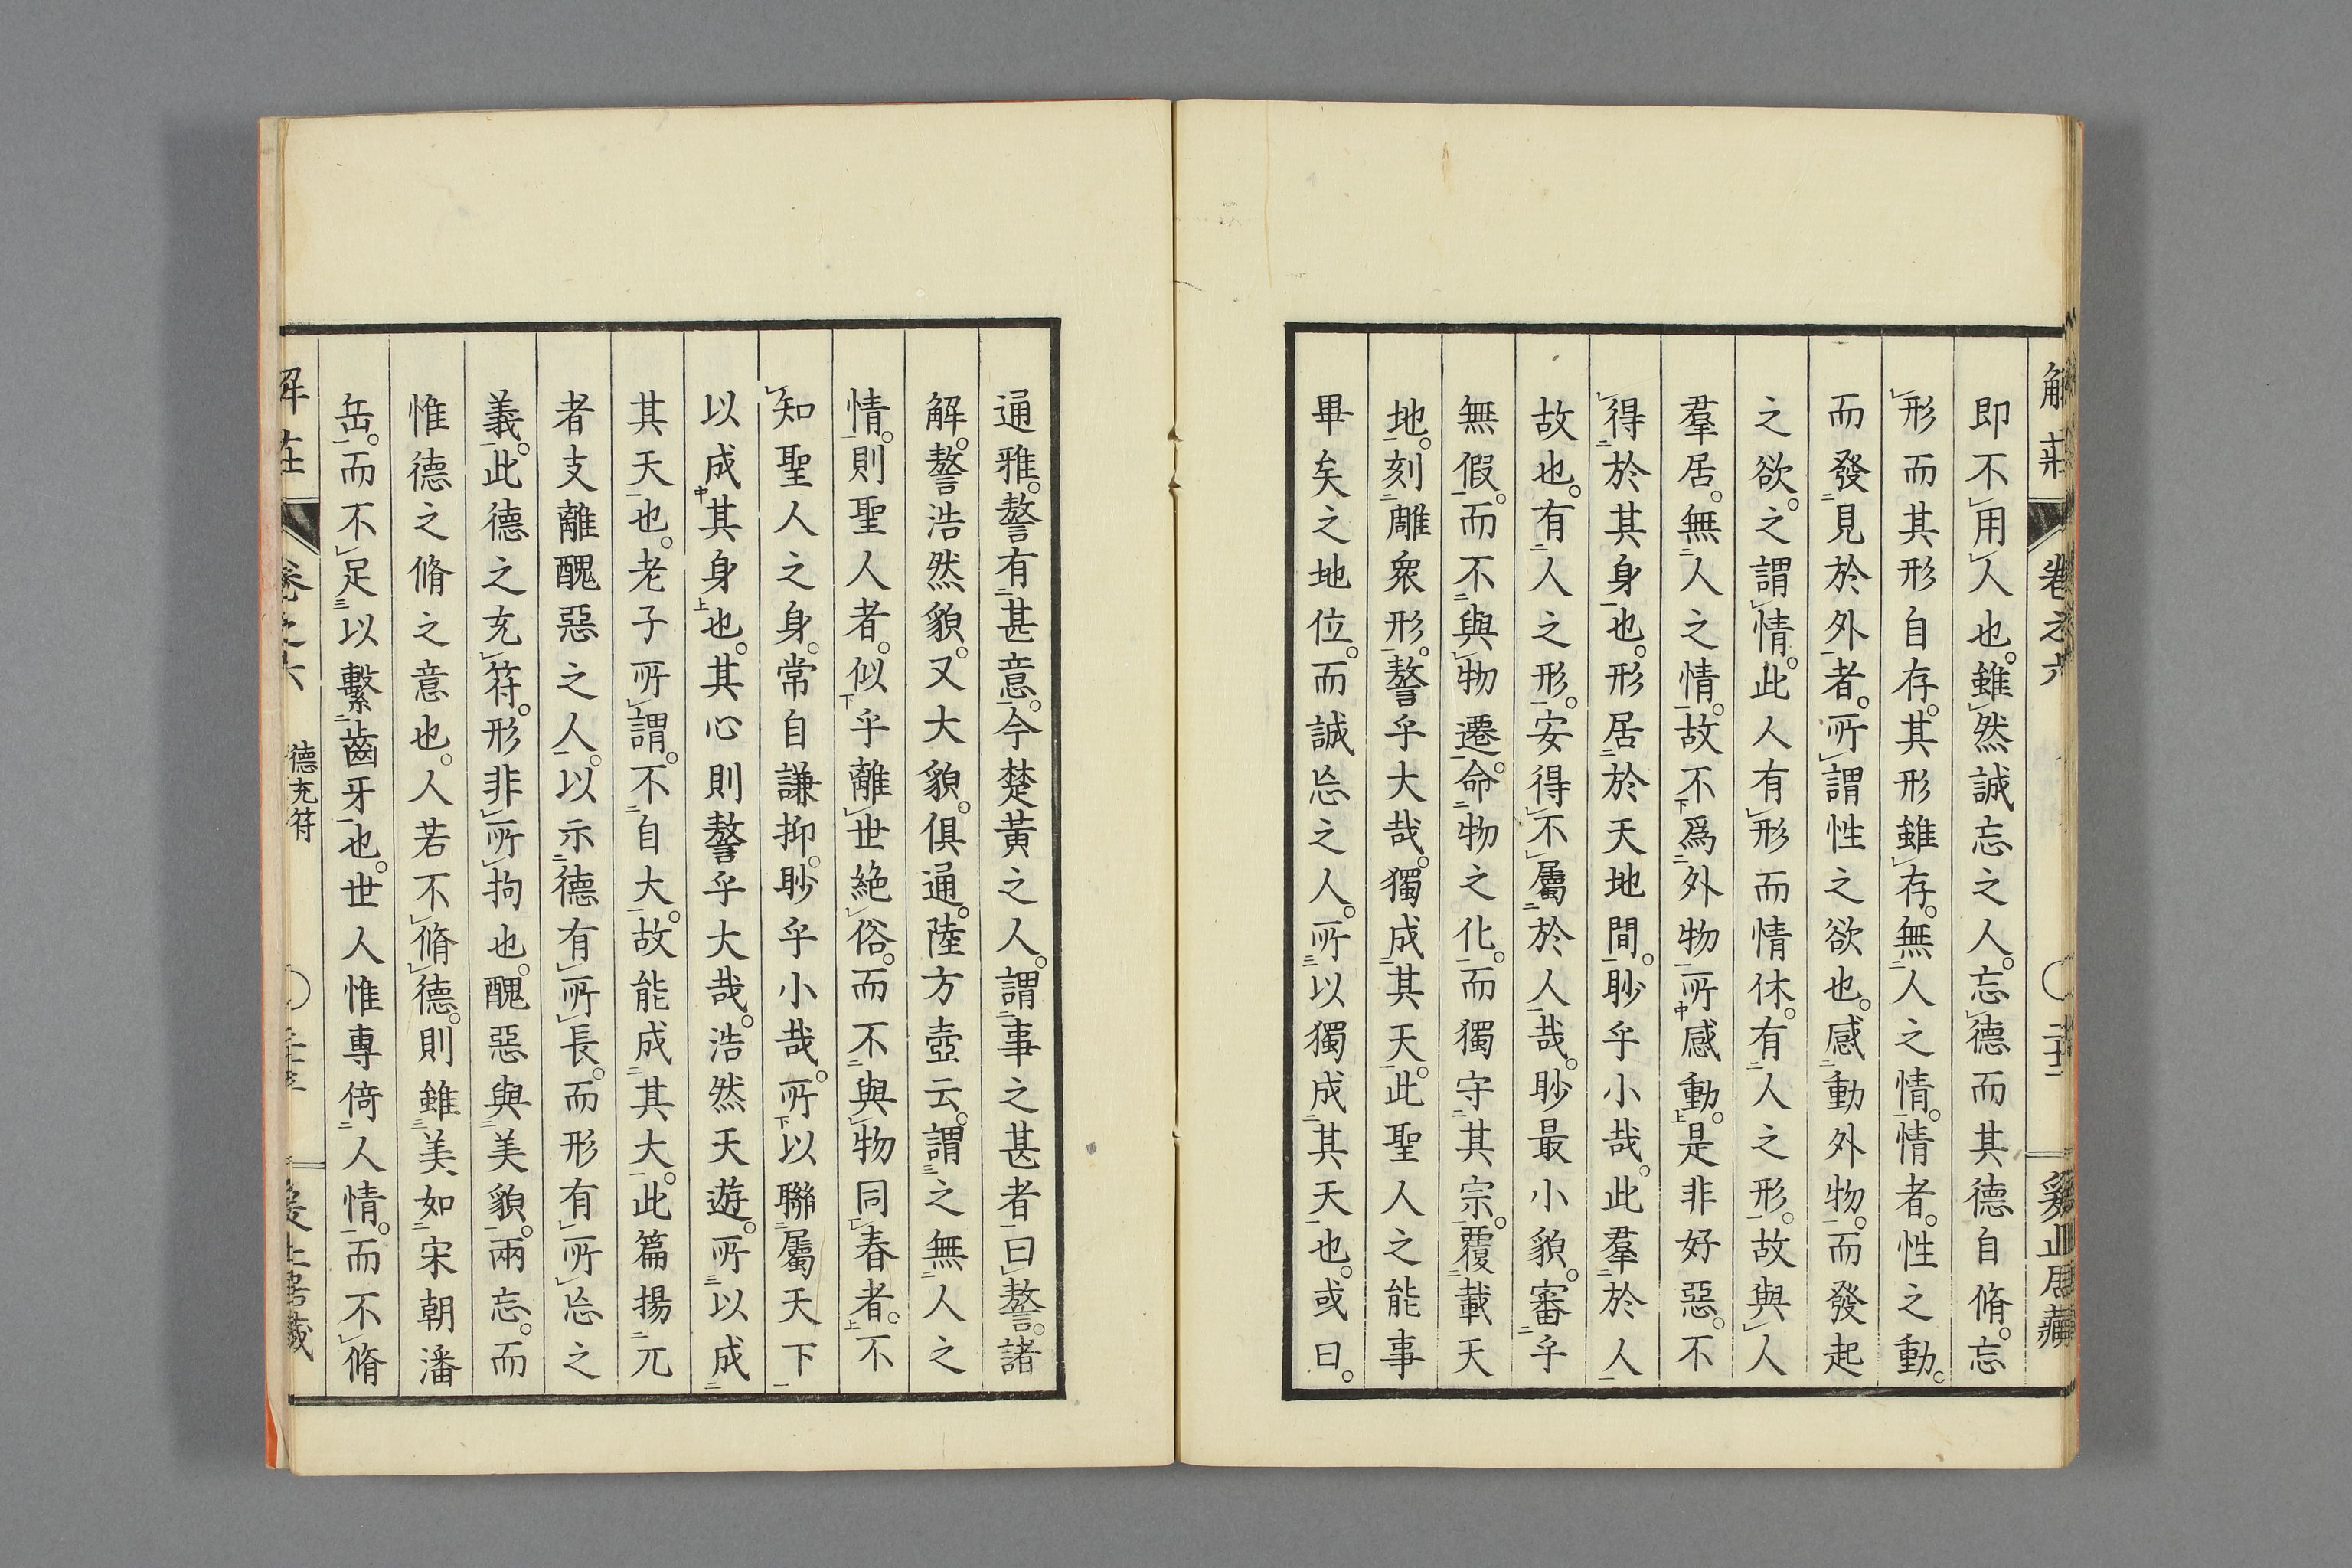 解莊 卷之六
即不用人也。雖然誠忘之人。忘德而其德自脩。忘
形而其形自存。其形雖存。無人之情。情者。性之動。
而發見於外者。所謂性之欲也。感動外物。而發起
之欲。之謂情。此人有形而情休。有人之形。故與人
羣居。無人之情。故不爲外物所感動。是非好惡。不
得於其身也。形居於天地間。眇乎小哉。此羣於人
故也。有人之形。安得不屬於人哉。眇最小貌。審乎
無假。而不與物遷。命物之化。而獨守其宗。覆載天
地。刻雕衆形。謷乎大哉。獨成其天。此聖人之能事
畢矣之地位。而誠忘之人。所以獨成其天也。或曰。
通雅。謷有甚意。今楚黃之人。謂事之甚者曰謷。諸
解。謷浩然貌。又大貌。俱通。陸方壺云。謂之無人之
情。則聖人者。似乎離世絶俗。而不與物同春者。不
知聖人之身。常自謙抑。眇乎小哉。所以聯屬天下
以成其身也。其心則謷乎大哉。浩然天遊。所以成
其天也。老子所謂。不自大。故能成其大。此篇揚兀
者支離醜惡之人。以示德有所長。而形有所忘之
義。此德之充符。形非所拘也。醜惡與美貌。兩忘。而
惟德之脩之意也。人若不脩德。則雖美如宋朝潘
岳。而不足以繫齒牙也。世人惟專倚人情。而不脩
德充符